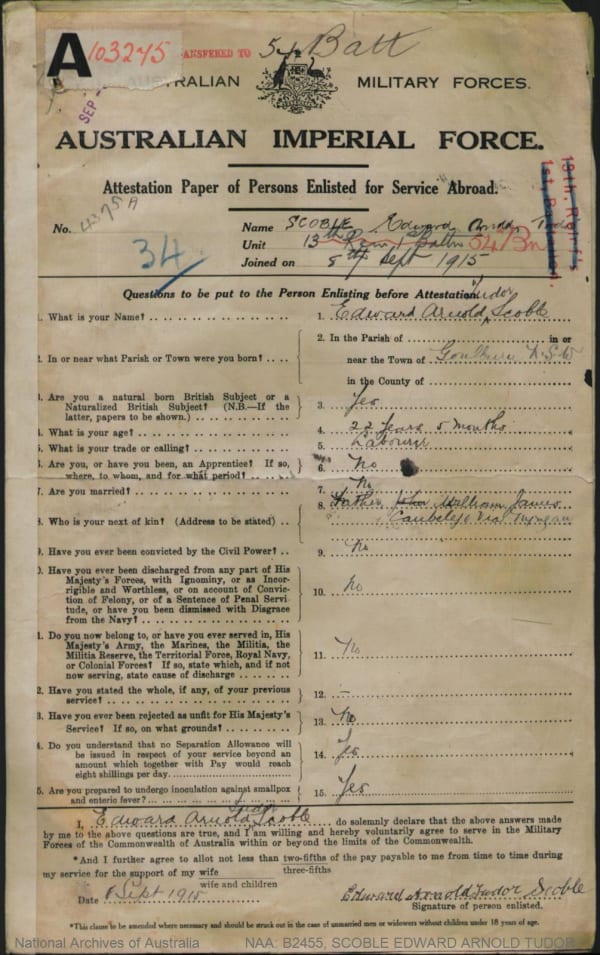 A 103245 ANSFERED TO 54 Batt
SEP
AUSTRALIAN MILITARY FORCES.
AUSTRALIAN IMPERIAL FORCE.
Attestation Paper of Persons Enlisted for Service Abroad.
No. 4375A Name SCOBLE Edward Arnold Tudor
34 Unit 13th 54/Bn
Joined on 8th Sept 1915
Questions to be put to the Person Enlisting before Attestation.
1. What is your Name? 1. Edward Arnold Tudor Scoble
2. In or near what Parish or Town were you born? 2. In the Parish of in or
near the Town of Goulburn N.S.W
in the County of
3. Are you a natural born British Subject or a
Naturalized British Subject? (N.B.—If the
latter, papers to be shown.) 3. Yes
4. What is your age? 4. 22 Years 5 months
5. What is your trade or calling? 5. Labourer
6. Are you, or have you been, an Apprentice? If so,
where, to whom, and for what period? 6. No
7. Are you married? 7. No
8. Who is your next of kin? (Address to be stated) 8. Father John William James
Canbelego Via Nyngan
9. Have you ever been convicted by the Civil Power? 9. No
10. Have you ever been discharged from any part of His
Majesty's Forces, with Ignominy, or as Incor-
rigible and Worthless, or on account of Convic-
tion of Felony, or of a Sentence of Penal Servi-
tude, or have you been dismissed with Disgrace
from the Navy? 10. No
11. Do you now belong to, or have you ever served in, His
Majesty's Army, the Marines, the Militia, the
Militia Reserve, the Territorial Force, Royal Navy,
or Colonial Forces? If so, state which, and if not
now serving, state cause of discharge 11. No
12. Have you stated the whole, if any, of your previous
service? 12. –
13. Have you ever been rejected as unfit for His Majesty's
Service? If so, on what grounds? 13. No
14. Do you understand that no Separation Allowance will
be issued in respect of your service beyond an
amount which together with Pay would reach
eight shillings per day. 14. Yes
15. Are you prepared to undergo inoculation against smallpox
and enteric fever? 15. Yes
I, Edward Arnold Tudor Scoble do solemnly declare that the above answers made
by me to the above questions are true, and I am willing and hereby voluntarily agree to serve in the Military
Forces of the Commonwealth of Australia within or beyond the limits of the Commonwealth.
*And I further agree to allot not less than two-fifths of the pay payable to me from time to time during
three-fifths
my service for the support of my wife
wife and children
Date 8 Sept 1915 Edward Arnold Tudor Scoble
Signature of person enlisted.
*This clause to be amended where necessary and should be struck out in the case of unmarried men or widowers without children under 18 years of age.
National Archives of Australia NAA: B2455, SCOBLE EDWARD ARNOLD TUDOR